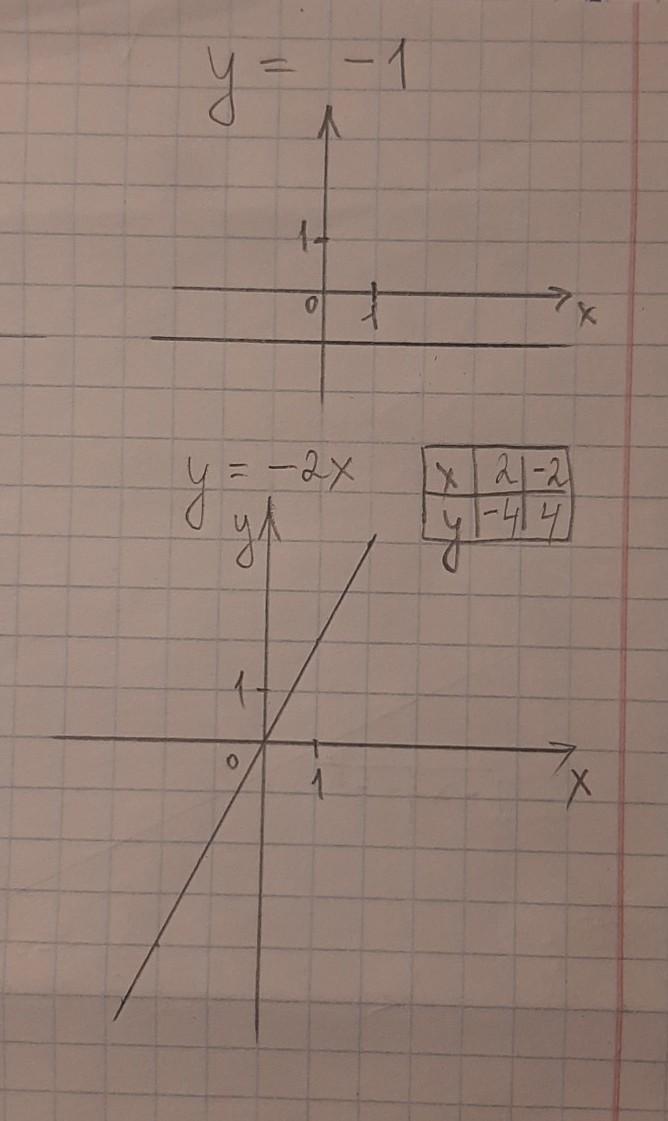 y = -1
1
0 1 x
y = -2x
x 2 -2
y y -4 4
1
0 1 x